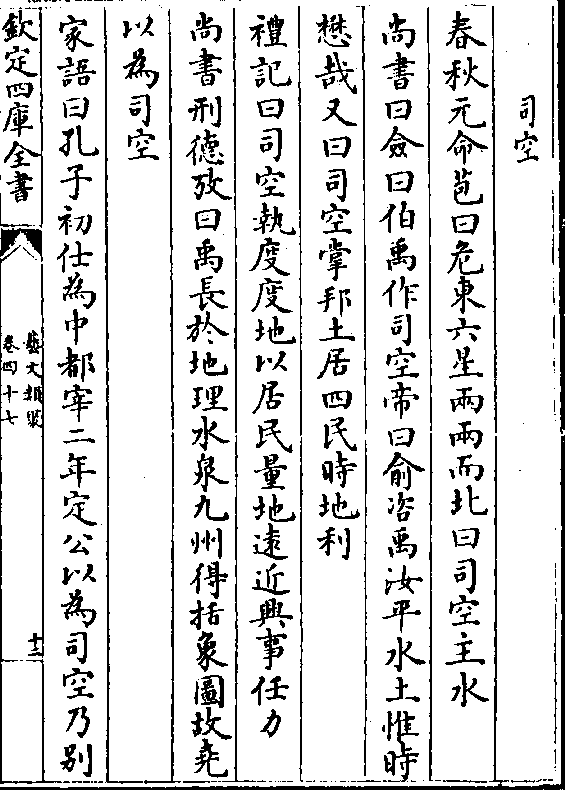 司空
春秋元命苞曰危東六星兩兩而北曰司空主水
尚書曰僉曰伯禹作司空帝曰俞咨禹汝平水土惟時
懋哉又曰司空掌邦土居四民時地利
禮記曰司空執度度地以居民量地遠近興事任力
尚書刑德攷曰禹長於地理水泉九州得括象圖故堯
以為司空
家語曰孔子初仕為中都宰二年定公以為司空乃別
欽定四庫全書
藝文類聚
卷四十七
十三